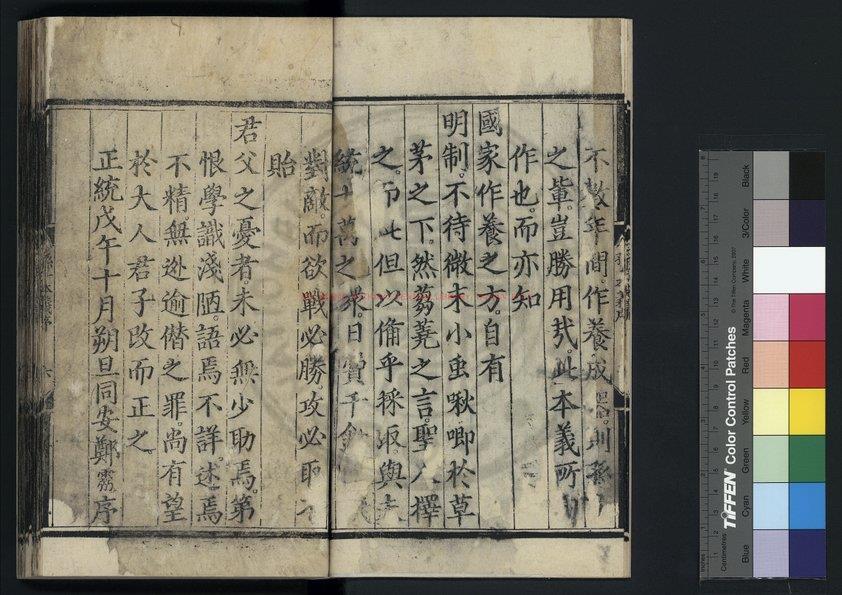 不數年間。作養成
之輩。豈勝用哉。此本義所
作也。而亦知
國家作養之方。自有
明制。不待微末小虫啾唧於草
茅之下。然芻蕘之言。聖人擇
之。但以備乎採取。與夫
統十萬之衆。日費千金
對敵。而欲戰必勝攻必取
貽
君父之憂者。未必無少助焉。第
恨學識淺陋語焉不詳。述焉
不精。無逊逾僣之罪。尚有望
於大人君子改而正之。
正統戊午十月朔旦同安鄭靈序
六
TIFFEN Color Control Patches
© The Tiffen Company, 2007
Inches
Centimetres
Blue
Cyan
Green
Yellow
Red
Magenta
White
3/Color
Black